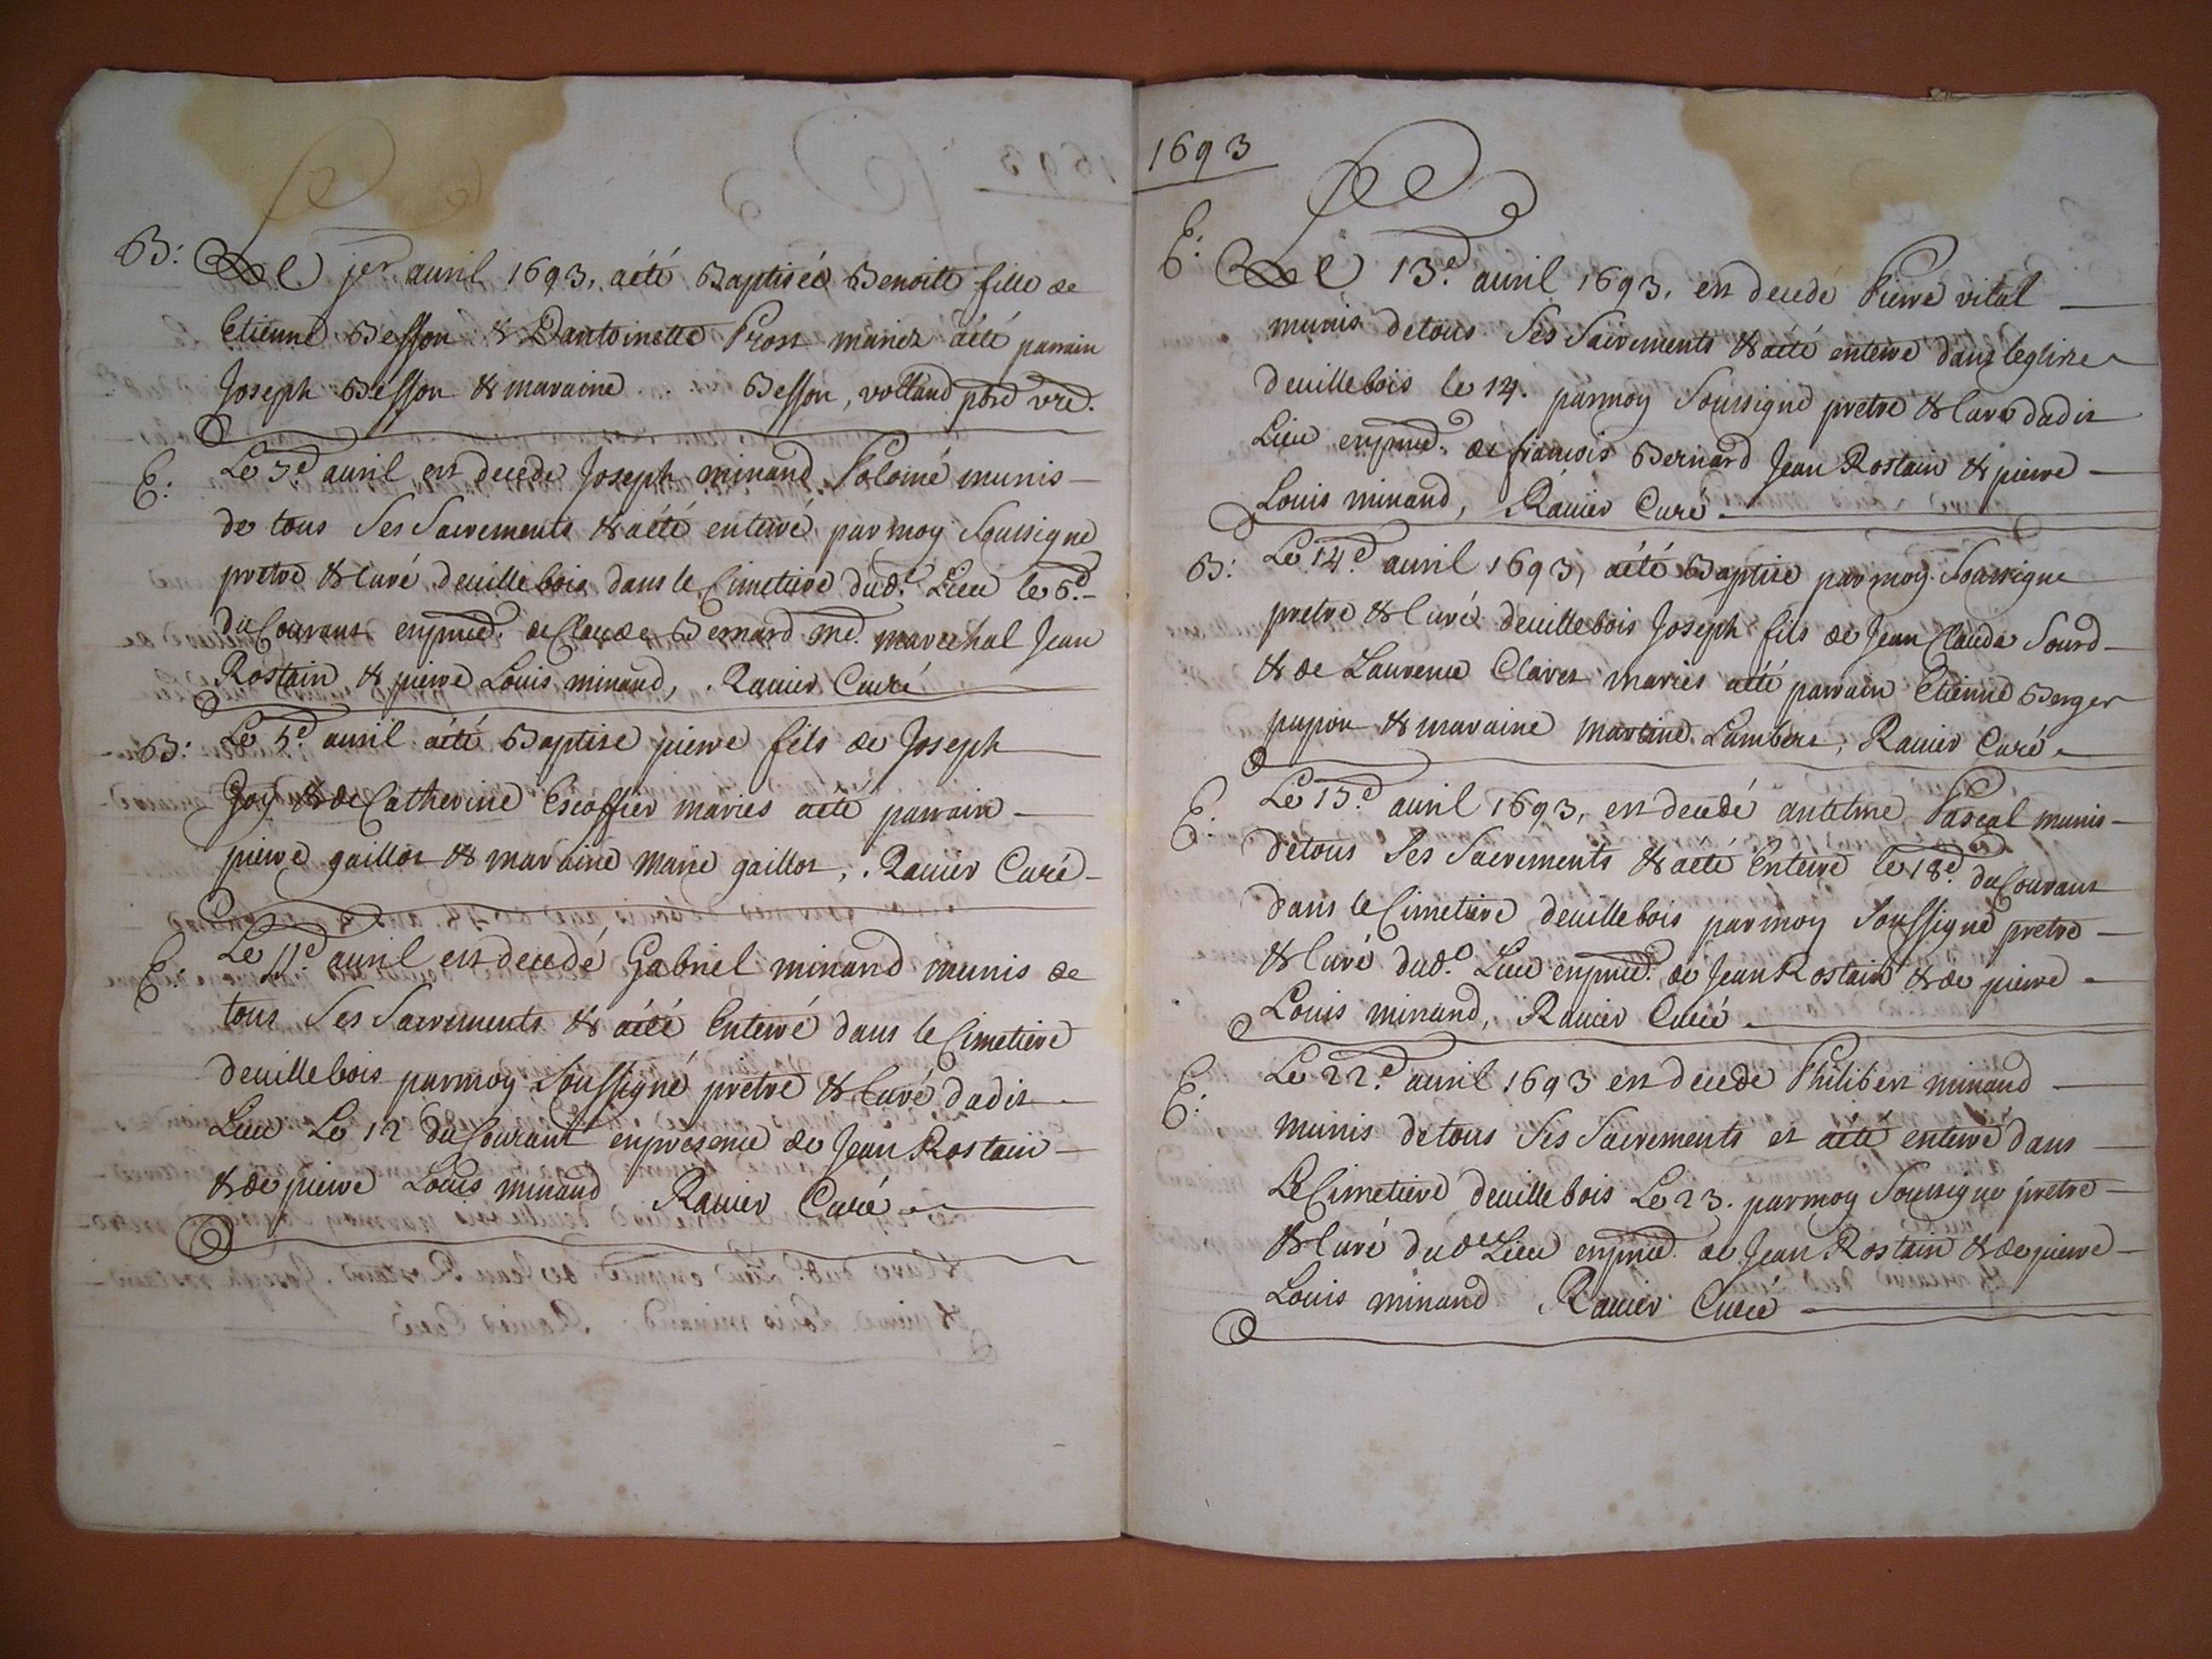 B: Le jer. auril 1693, aété Baptiséé Benoite fille de
Etienne Besson & Dantoinette Prost mariez aété parrain
Joseph Besson & maraine . . . Besson, volland ptre vre.
E: Le 5e. auril est decede Joseph minand Polomé munis
de tous Ses Sacrements & aété enterré par moy Soussigne
pretre & Curé deuillebois dans le Cimetiere dud. Lieu le 6e.
du Courant enpnce. de Claude Bernard me. marechal Jean
Rostain & pierre Louis minand, . Rauier Curé
B: Le 5e. auril aété Baptise pierre fils de Joseph
Joy & de Catherine Escoffier maries aété parrain
pierre gaillot & maraine marie gaillot, . Rauier Curé
E: Le 11e. auril est decedé Gabriel minand munis de
tous Ses Sacrements & aété Enterré dans le Cimetiere
deuillebois parmoy Soussigné pretre & Curé dudit
Lieu Le 12 du Courant enpresence de Jean Rostain
& de pierre Louis minand Rauier Curé
1693
E: Le 13e. auril 1693, est decedé Pierre vital
munis detous Ses Sacrements & aété enterré dans leglise
deuillebois le 14. parmoy Soussigné pretre & Curé dudit
Lieu enpnce. de francois Bernard Jean Rostain & pierre
Louis minand, Rauier Curé
B: Le 14e. auril 1693, aété Baptise parmoy Soussigne
pretre & Curé deuillebois Joseph fils de Jean Claude Sourd
& de Laurence Claret maries aété parrain Etienne Berger
papon & maraine martine Lambert, Rauier Curé
E: Le 15e. auril 1693, est decedé antelme Pascal munis
detous Ses Sacrements & aété Enterré le 18e. du Courant
dans le Cimetiere deuillebois parmoy Soussigné pretre
& Curé dud. Lieu enpnce. de Jean Rostain & de pierre
Louis minand, Rauier Curé
E: Le 22e. auril 1693 est decede Philibert minand
munis detous Ses Sacrements et aété enterré dans
Le Cimetiere deuillebois Le 23. parmoy Soussigne pretre
& Curé dud. Lieu enpnce. de Jean Rostain & de pierre
Louis minand Rauier Curé